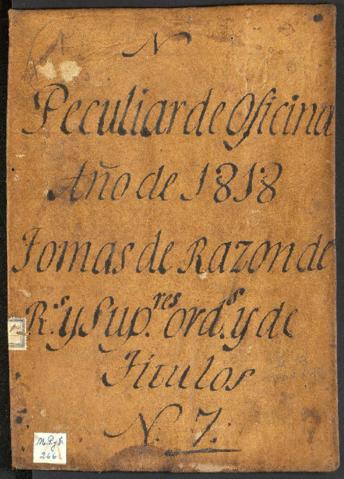 N
Peculiar de Oficina
Año de 1818
Tomas de Razon de
R.s y Sup.res ord.s y de
Titulos
N. 7.
266